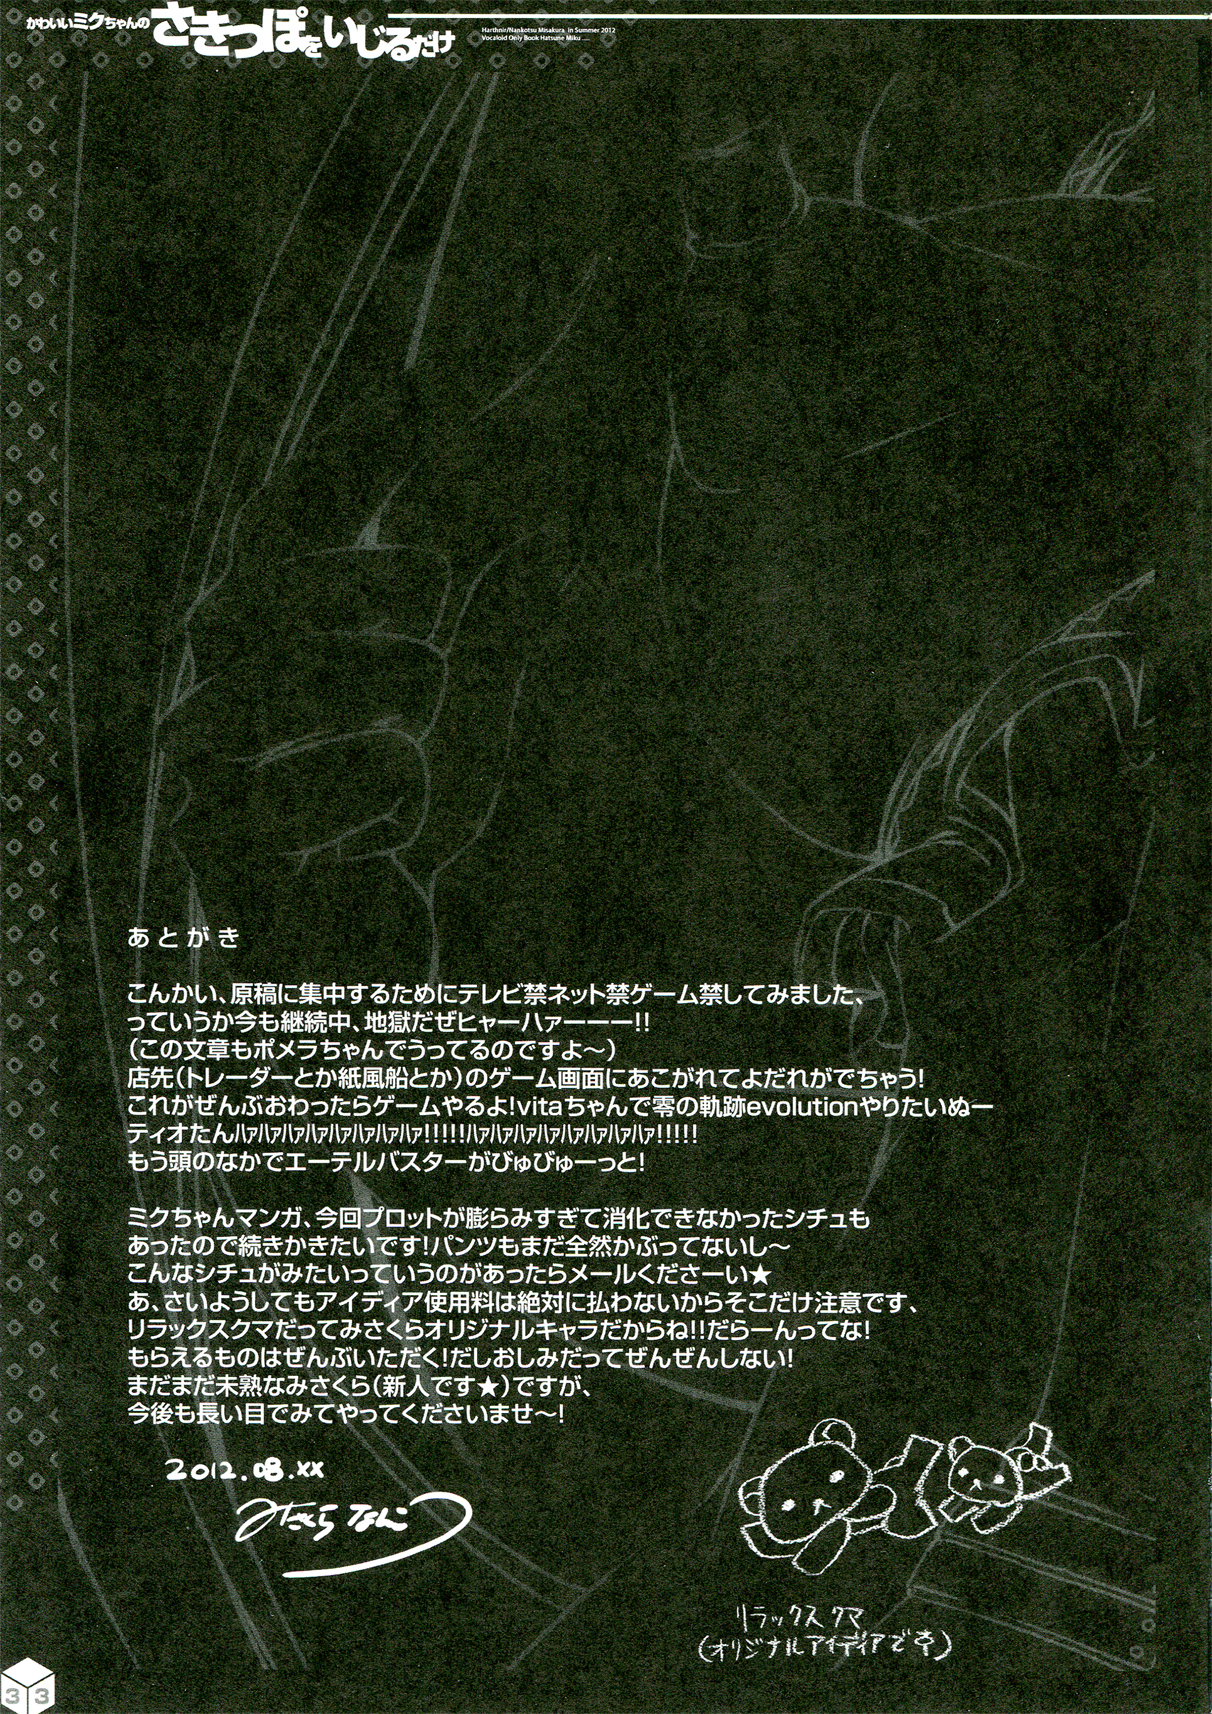 かわいいミクちゃんのさきっぽをいじるだけ
Harthnir/Nankotsu Misakura in Summer 2012
Vocaloid Only Book Hatsune Miku .....
あとがき
こんかい、原稿に集中するためにテレビ禁ネット禁ゲーム禁してみました、
っていうか今も継続中、地獄だぜヒャーハァーーー!!
(この文章もポメラちゃんでうってるのですよ〜)
店先(トレーダーとか紙風船とか)のゲーム画面にあこがれてよだれがでちゃう!
これがぜんぶおわったらゲームやるよ!vitaちゃんで零の軌跡evolutionやりたいぬー
ティオたんﾊｧﾊｧﾊｧﾊｧﾊｧﾊｧﾊｧﾊｧ!!!!!ﾊｧﾊｧﾊｧﾊｧﾊｧﾊｧﾊｧﾊｧ!!!!!
もう頭のなかでエーテルバスターがびゅびゅーっと!
ミクちゃんマンガ、今回プロットが膨らみすぎて消化できなかったシチュも
あったので続きかきたいです!パンツもまだ全然かぶってないし〜
こんなシチュがみたいっていうのがあったらメールくださーい★
あ、さいようしてもアイディア使用料は絶対に払わないからそこだけ注意です、
リラックスクマだってみさくらオリジナルキャラだからね!!だらーんってな!
もらえるものはぜんぶいただく!だしおしみだってぜんぜんしない!
まだまだ未熟なみさくら(新人です★)ですが、
今後も長い目でみてやってくださいませ〜!
2012.08.XX
みさくらなんこつ
リラックスクマ
(オリジナルアイディアです)
33